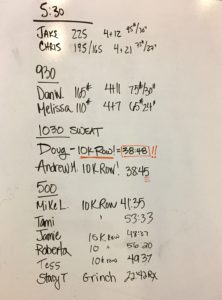 5:30
JAKE 225 4+12 45#/30"
CHRIS 195/165 4+21 75#/24"
930
Dan W. 165# 4+11 75#/30"
Melissa 110# 4+7 65#24"
1030 SWEAT
Doug - 10K Row! = 38:48!!
Andrew H. 10K Row! 3845
500
Mike L 10K Row 41:35
Tami " 53:33
Jamie 10K Row 48:37
Roberta 10 " 56:20
Tess 10K Row 49:37
Stacy T Grinch 22:42 RX